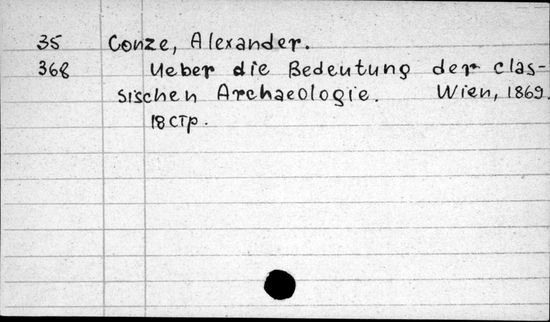 35 Conze, Alexander.
368 Ueber die Bedeutung der clas-
sischen Archaeologie. Wien, 1869.
18 стр.